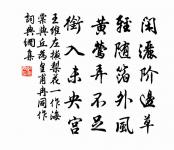 閑灑階邊草
輕隨箔外風
黃鶯弄不足
銜入未央宮
王維左掖梨花一作海
棠與丘為皇甫冉同作
詞典網集